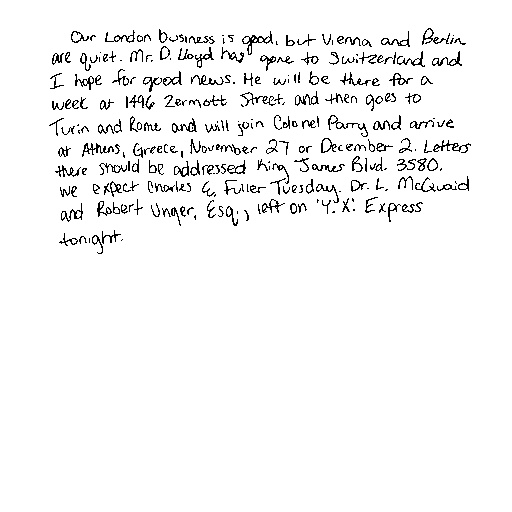 Our London business is good, but Vienna and Berlin
are quiet. Mr. D. Lloyd has gone to Switzerland and
I hope for good news. He will be there for a
week at 1496 Zermott Street, and then goes to
Turin and Rome and will join Colonel Parry and arrive
at Athens, Greece, November 27 or December 2. Letters
there should be addressed King James Blvd. 3580.
We expect Charles E. Fuller Tuesday. Dr. L. McQuaid
and Robert Unger, Esq., left on 'Y.X.' Express
tonight.